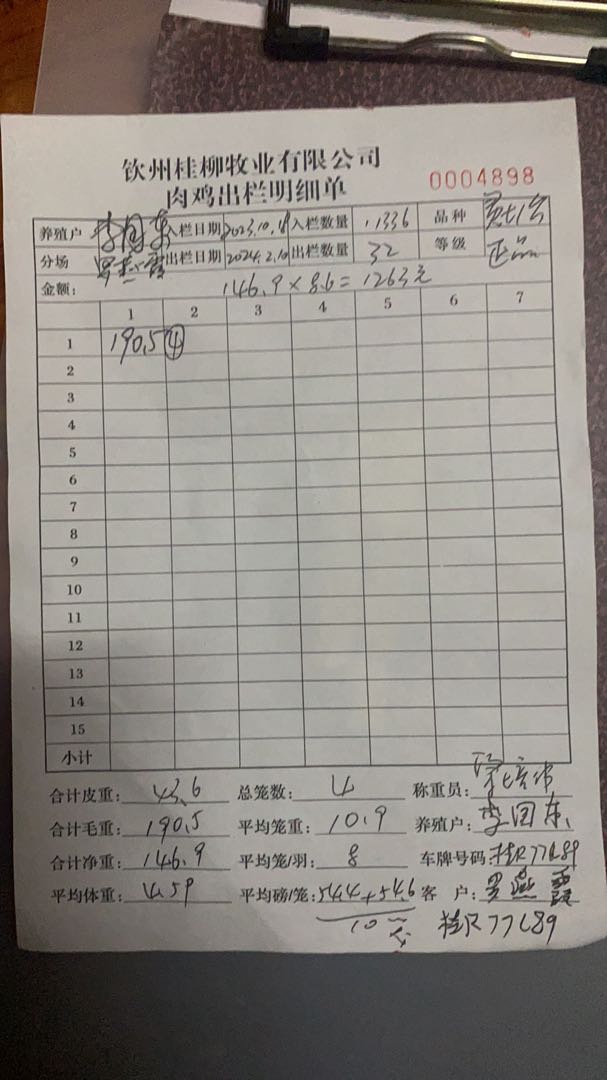 钦州桂柳牧业有限公司
肉鸡出栏明细单
0004898
养殖户 李国东 入栏日期 2023.10. 入栏数量 11336 品种
分场 罗燕霞 出栏日期 2024.2.10 出栏数量 32 等级 正品
金额: 146.9×8.6=1263元
1 2 3 4 5 6 7
1 190.5 ④
2
3
4
5
6
7
8
9
10
11
12
13
14
15
小计
合计皮重: 43.6 总笼数: 4 称重员:
合计毛重: 190.5 平均笼重: 10.9 养殖户: 李国东
合计净重: 146.9 平均笼/羽: 8 车牌号码: 桂R77L89
平均体重: 4.59 平均磅/笼: 54.4+54.6 客 户: 罗燕霞
10 桂R77L89